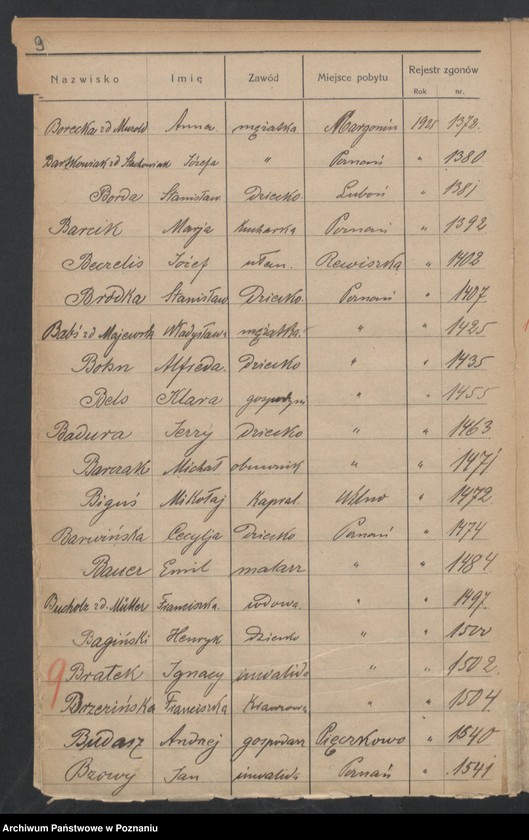 9
Nazwisko Imię Zawód Miejsce pobytu Rejestr zgonów
Rok nr.
Borecka zd Murold Anna mężatka Margonin 1925 1378.
Bartkowiak zd Stachowiak Józefa " Poznań " 1380
Borda Stanisław Dziecko Luboń " 1381
Barcik Marja Kucharka Poznań " 1392
Becrelis Józef ułan. Rewiszka " 1402
Brodka Stanisław Dziecko Poznań " 1407
Babś zd Majewska Władysława mężatka " " 1425
Alfreda. Dziecko " " 1435
Bels Klara " " 1455
Badura Jerzy dziecko " " 1463
Barczak Michał obuwnik " " 1471
Biguś Mikołaj Kapral. Wilno " 1472
Barwińska Cecylja Dziecko Poznań " 1474
Bauer Emil malarz " " 1484
Bucholz zd. Müller Franciszka. wdowa " " 1497.
Bagiński Henryk dziecko " " 1500
9 Bratek Ignacy inwalida " " 1502.
Brzezińska Franciszka " " 1504
Budasz Andrzej gospodarz Pięczkowo " 1540
Bzowy Jan inwalida Poznań " 1541
Archiwum Państwowe w Poznaniu